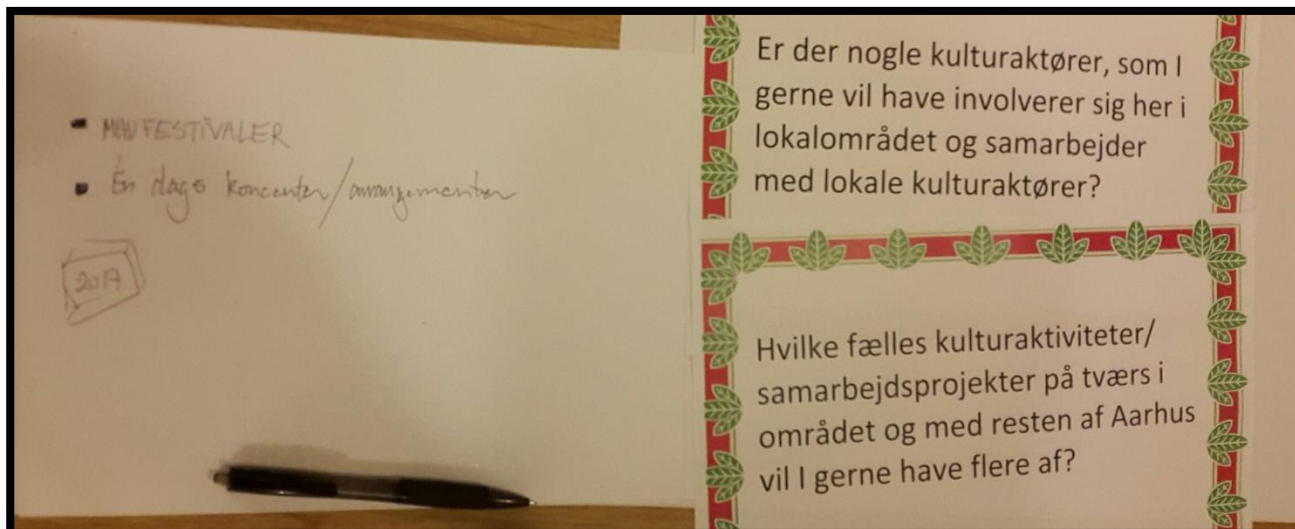 MADFESTIVALER
Én dags koncerter/arrangementer
2017
Er der nogle kulturaktører, som I
gerne vil have involverer sig her i
lokalområdet og samarbejder
med lokale kulturaktører?
Hvilke fælles kulturaktiviteter/
samarbejdsprojekter på tværs i
området og med resten af Aarhus
vil I gerne have flere af?